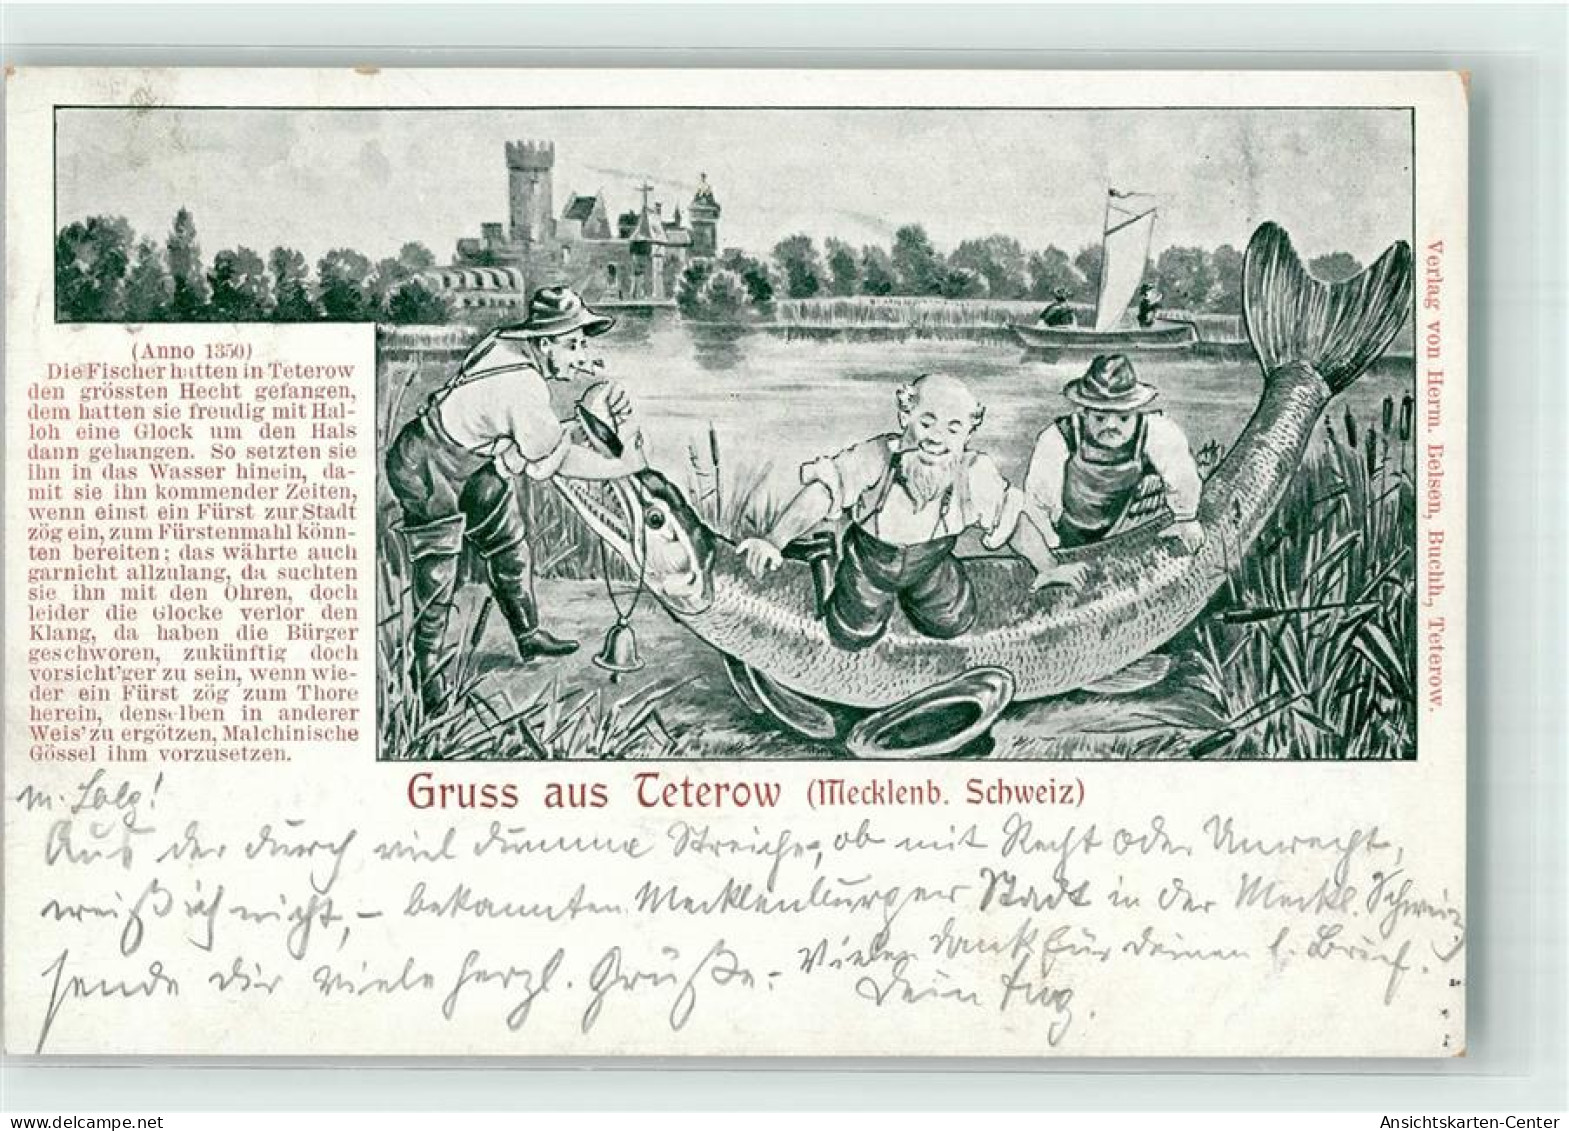 (Anno 1350)
Die Fischer hatten in Teterow
den grössten Hecht gefangen,
dem hatten sie freudig mit Hal-
loh eine Glock um den Hals
dann gehangen. So setzten sie
ihn in das Wasser hinein, da-
mit sie ihn kommender Zeiten,
wenn einst ein Fürst zur Stadt
zög ein, zum Fürstenmahl könn-
ten bereiten; das währte auch
garnicht allzulang, da suchten
sie ihn mit den Ohren, doch
leider die Glocke verlor den
Klang, da haben die Bürger
geschworen, zukünftig doch
vorsicht'ger zu sein, wenn wie-
der ein Fürst zög zum Thore
herein, denselben in anderer
Weis' zu ergötzen, Malchinische
Gössel ihm vorzusetzen.
Verlag von Herm. Belsen, Buchh., Teterow.
Gruss aus Teterow (Mecklenb. Schweiz)
Aus der durch viel dumme Streiche, ob mit Recht oder Unrecht,
weiß ich nicht, – bekannten Mecklenburger Stadt in der Meckl. Schweiz
sende dir viele herzl. Grüße. – Vielen Dank für deinen l. Brief.
Dein
Ansichtskarten-Center